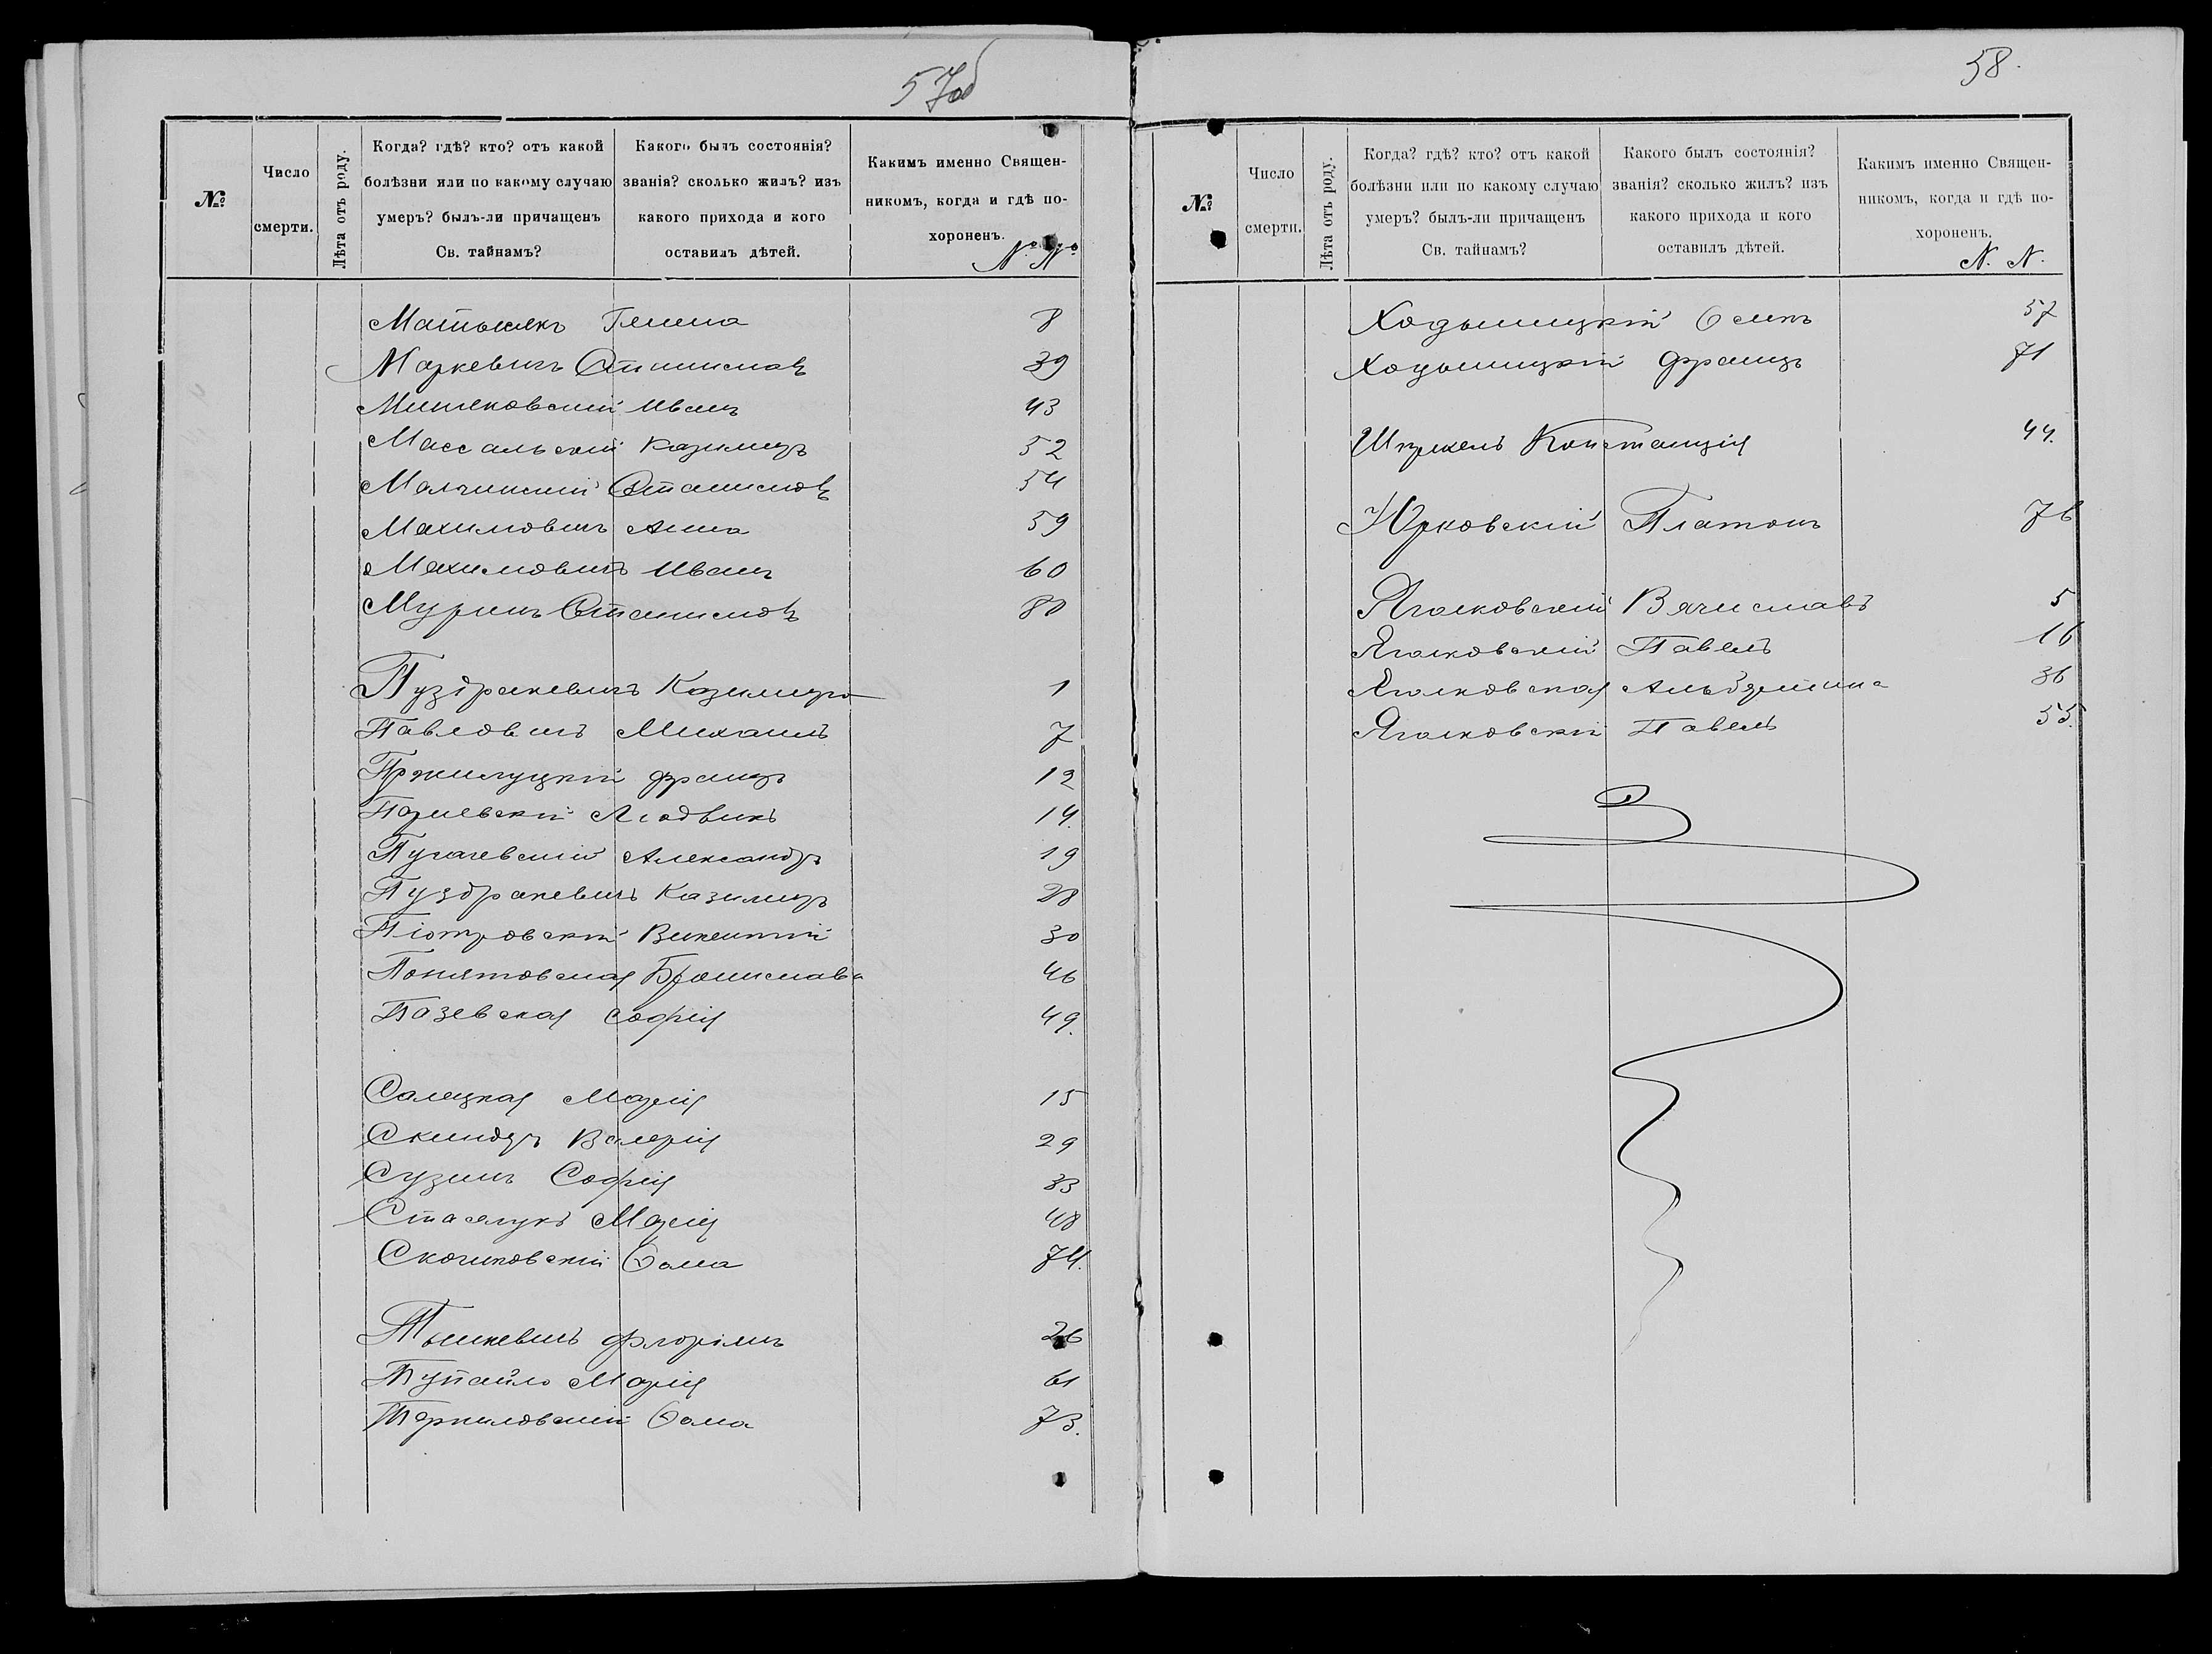 57об
№
Число смерти.
Лѣта отъ роду.
Когда? гдѣ? кто? отъ какой болѣзни или по какому случаю умеръ? былъ-ли причащенъ Св. тайнамъ?
Какого былъ состоянія? званія? сколько жилъ? изъ какого прихода и кого оставилъ дѣтей.
Какимъ именно Священникомъ, когда и гдѣ похороненъ.
№ №
Матысякъ 8
Маркевичъ Станиславъ 39
Иванъ 43
Массальскій Казимиръ 52
Малчинскій Станиславъ 54
Махимовичъ Анна 59
Махимовичъ Иванъ 60
Муринъ Станиславъ 80
Пуздракевичъ Казимира 1
Павловичъ Михаилъ 7
Пржилуцкій Францъ 12
Людвикъ 14.
Пугачевскій Александръ 19
Пуздракевичъ Казимиръ 28
Піотровскій Викентій 30
Понятовская Брониславa 46
Пазевская Софія 49.
Салецкая Марія 15
Скиндеръ Валерія 29
Сузинъ Софія 33
Стаселукъ Марія 48
Скочиковскій Ѳома 74.
Тышкевичъ Флоріянъ 26
Тупайло Марія 61
Ѳома 73.
58.
№
Число смерти.
Лѣта отъ роду.
Когда? гдѣ? кто? отъ какой болѣзни или по какому случаю умеръ? былъ-ли причащенъ Св. тайнамъ?
Какого былъ состоянія? званія? сколько жилъ? изъ какого прихода и кого оставилъ дѣтей.
Какимъ именно Священникомъ, когда и гдѣ похороненъ.
N. N.
Ходыницкій 57
Ходыницкій Францъ 71
Констанція 44.
Юрковскій Платонъ 76
Ягалковскій Вячиславъ 5
Ягалковскій Павелъ 16
Ягалковская Альбертина 36
Ягалковскій Павелъ 55.